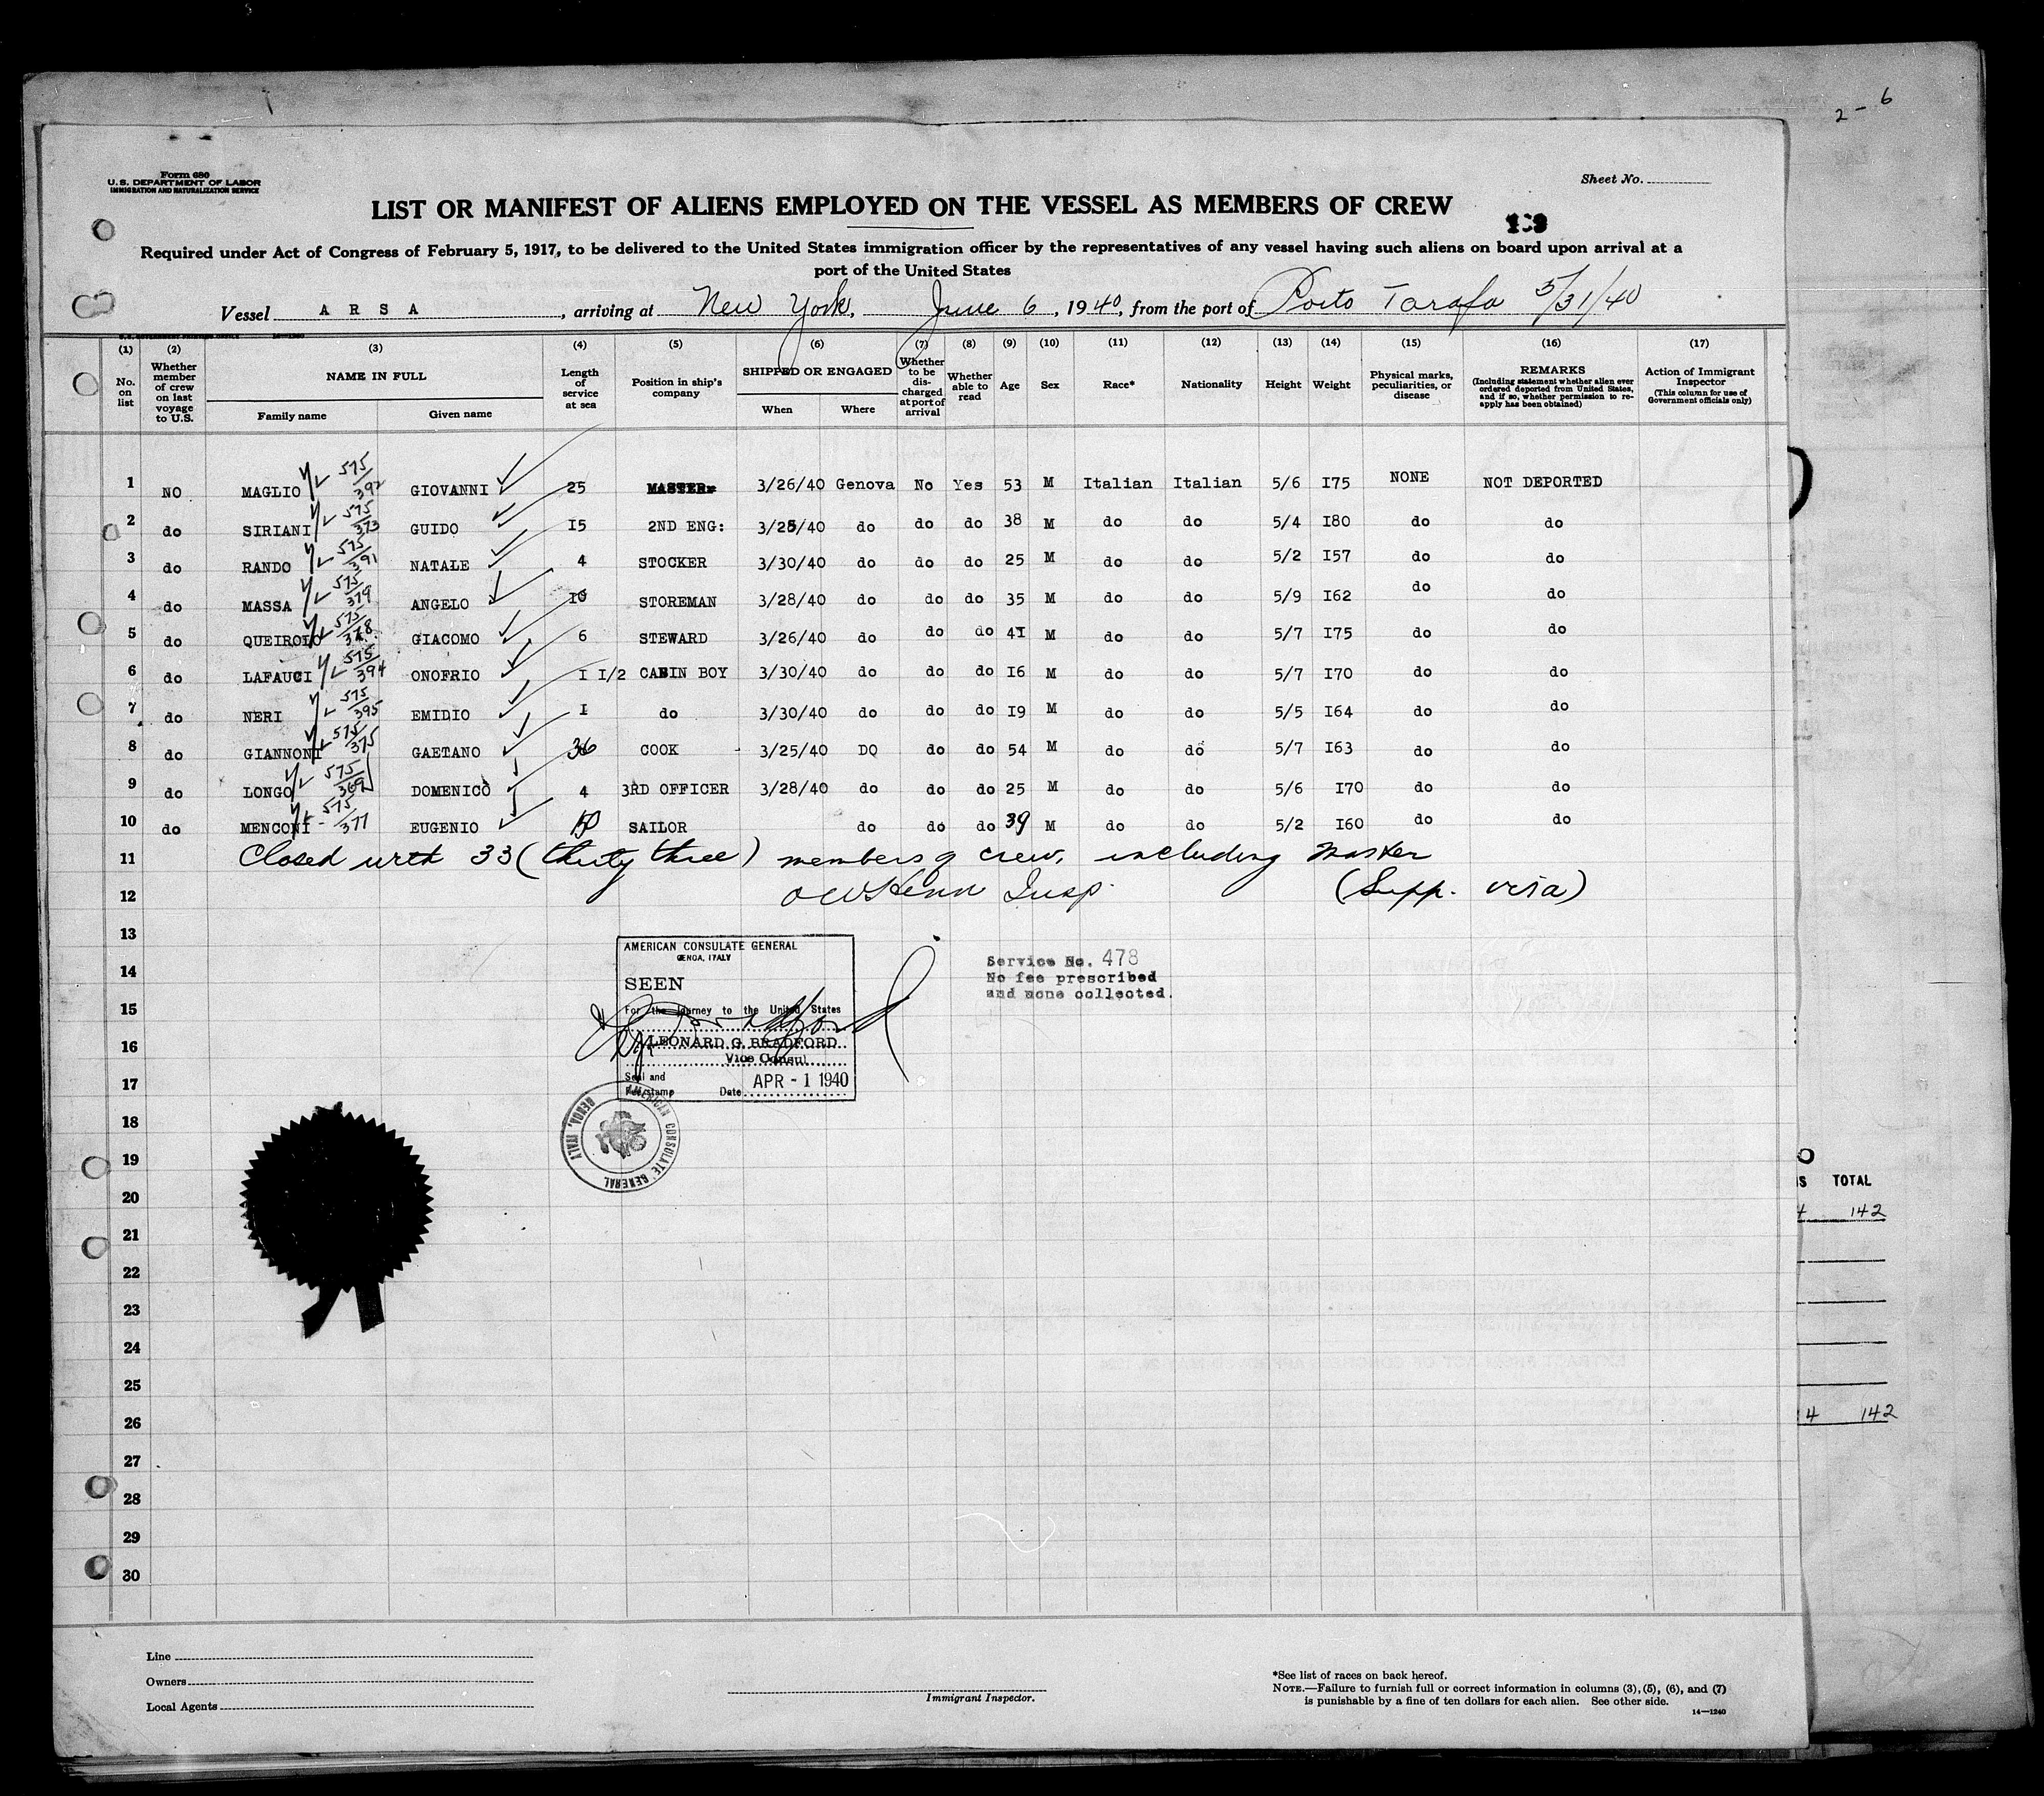 2 - 6
Form 680
U.S. DEPARTMENT OF LABOR
IMMIGRATION AND NATURALIZATION SERVICE
Sheet No.
LIST OR MANIFEST OF ALIENS EMPLOYED ON THE VESSEL AS MEMBERS OF CREW
Required under Act of Congress of February 5, 1917, to be delivered to the United States immigration officer by the representatives of any vessel having such aliens on board upon arrival at a
port of the United States
Vessel A R S A, arriving at New York, June 6, 1940, from the port of Porto Tarafa 5/31/40
(1) (2) (3) (4) (5) (6) (7) (8) (9) (10) (11) (12) (13) (14) (15) (16) (17)
No. on list Whether member of crew on last voyage to U.S. NAME IN FULL Family name Given name Length of service at sea Position in ship's company SHIPPED OR ENGAGED When Where Whether to be discharged at port of arrival Whether able to read Age Sex Race* Nationality Height Weight Physical marks, peculiarities, or disease REMARKS (Including statement whether alien ever ordered deported from United States, and if so, whether permission to re-apply has been obtained) Action of Immigrant Inspector (This column for use of Government officials only)
1 NO MAGLIO 575/392 GIOVANNI 25 MASTER 3/26/40 Genova No Yes 53 M Italian Italian 5/6 I75 NONE NOT DEPORTED
2 do SIRIANI 575/373 GUIDO I5 2ND ENG: 3/25/40 do do do 38 M do do 5/4 I80 do do
3 do RANDO 575/391 NATALE 4 STOCKER 3/30/40 do do do 25 M do do 5/2 I57 do do
4 do MASSA 575/379 ANGELO STOREMAN 3/28/40 do do do 35 M do do 5/9 I62 do do
5 do QUEIROLO 575 GIACOMO 6 STEWARD 3/26/40 do do do 4I M do do 5/7 I75 do do
6 do LAFAUCI 575/394 ONOFRIO I I/2 CABIN BOY 3/30/40 do do do I6 M do do 5/7 I70 do do
7 do NERI 575/395 EMIDIO I do 3/30/40 do do do I9 M do do 5/5 I64 do do
8 do GIANNONI 575/375 GAETANO 36 COOK 3/25/40 DO do do 54 M do do 5/7 I63 do do
9 do LONGO 575/369 DOMENICO 4 3RD OFFICER 3/28/40 do do do 25 M do do 5/6 I70 do do
10 do MENCONI 575/377 EUGENIO SAILOR do do do 39 M do do 5/2 I60 do do
11 Closed with 33 (thirty three) members of crew, including Master
12 Insp. (Supp. visa)
13
14
15
16
17
18
19
20
21
22
23
24
25
26
27
28
29
30
AMERICAN CONSULATE GENERAL
GENOA, ITALY
SEEN
For the journey to the United States
LEONARD G. BRADFORD
Vice Consul
Seal and
Fee stamp Date APR - 1 1940
Service No. 478
No fee prescribed
and none collected.
AMERICAN CONSULATE GENERAL GENOA, ITALY
S TOTAL
4 142
14 142
Line
Owners
Local Agents
Immigrant Inspector.
*See list of races on back hereof.
NOTE.—Failure to furnish full or correct information in columns (3), (5), (6), and (7)
is punishable by a fine of ten dollars for each alien. See other side.
14—1240